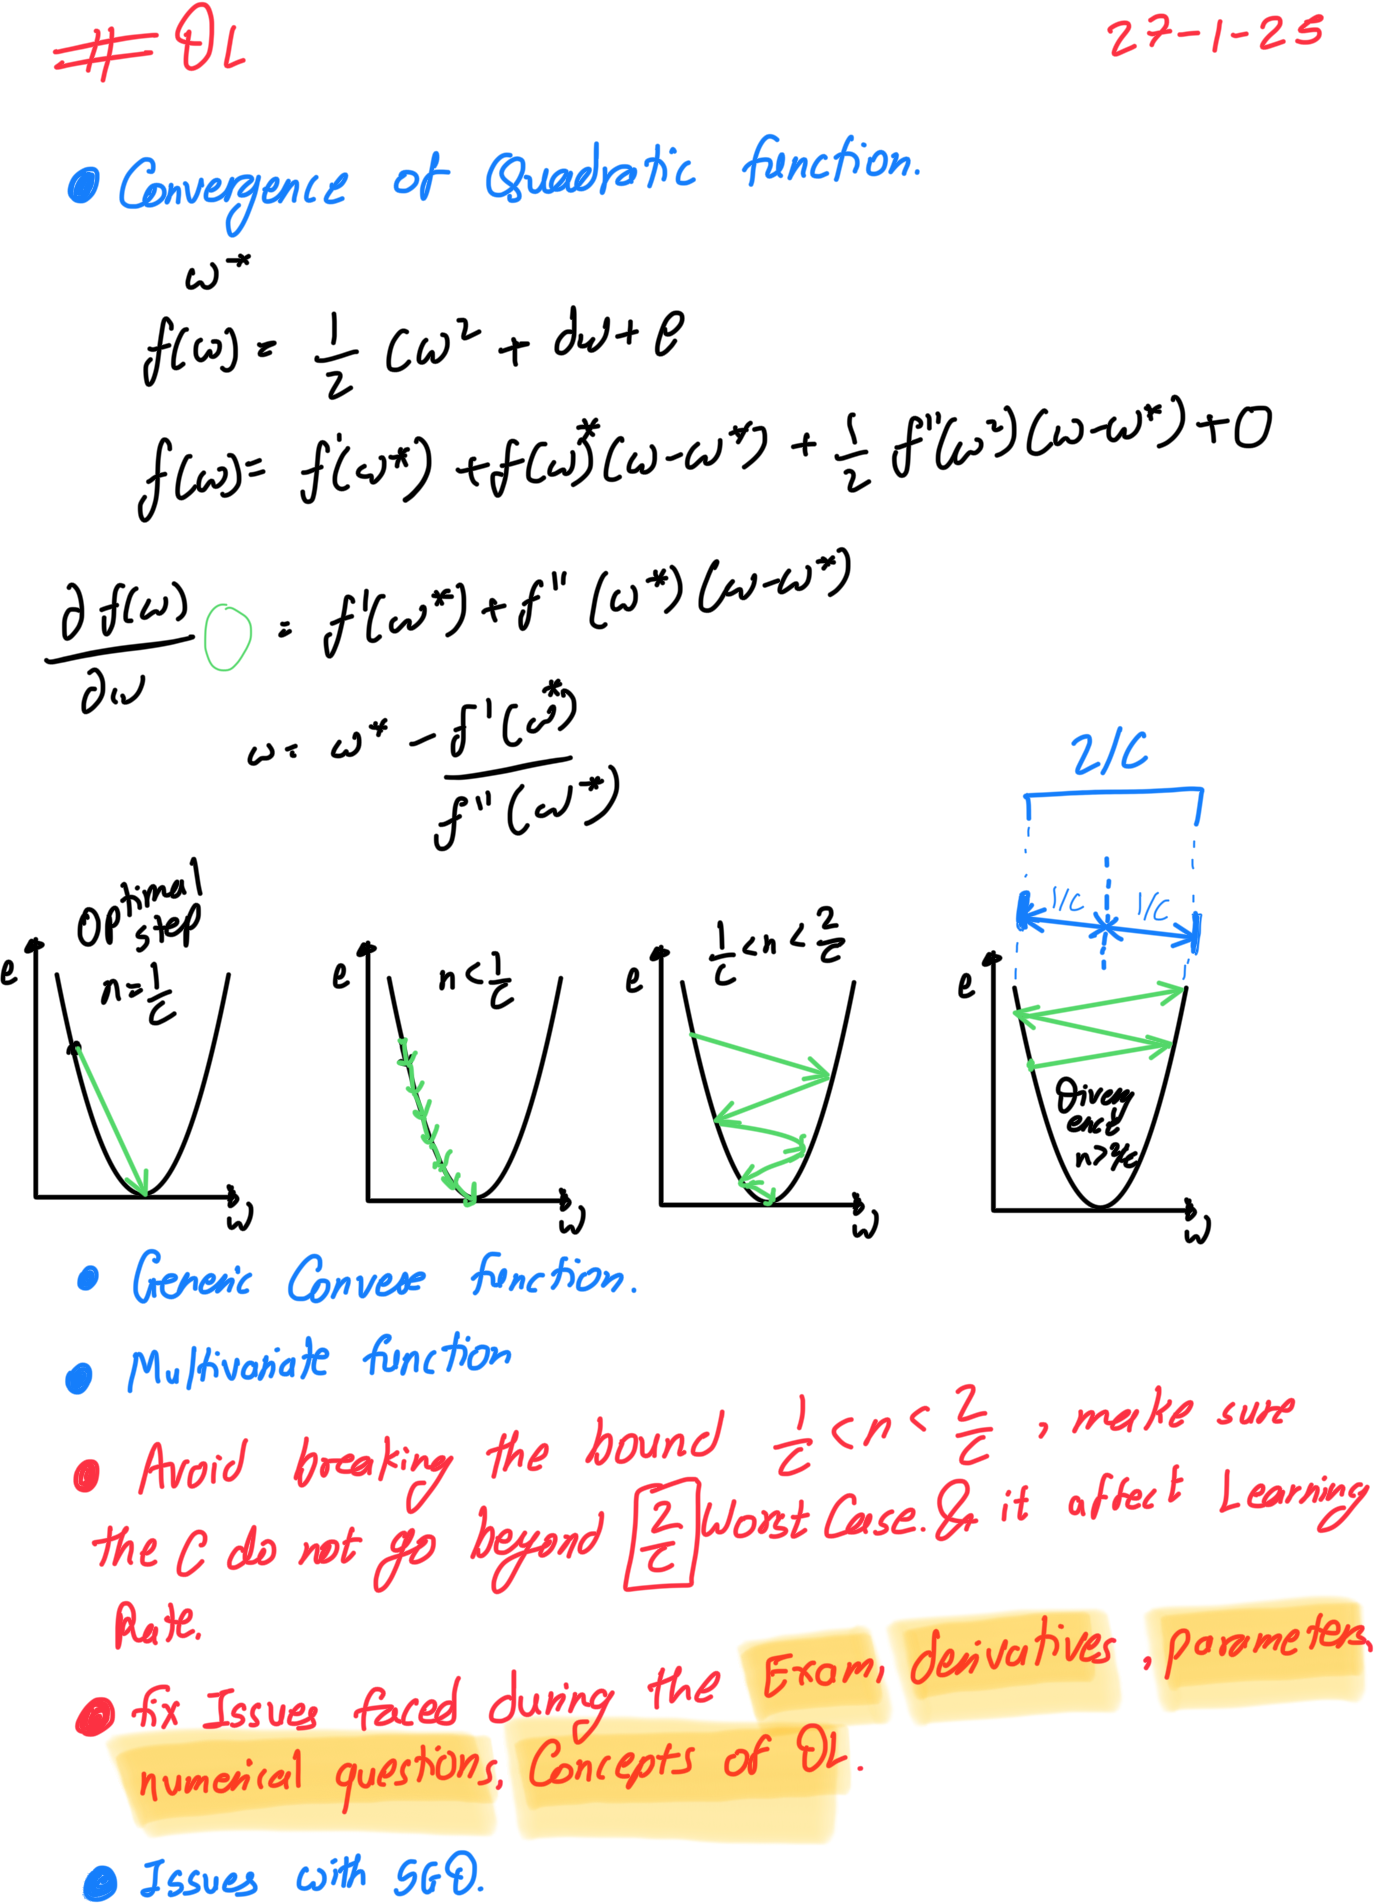 # DL
27-1-25
Convergence of Quadratic function.
ω*
f(ω) = 1/2 Cω² + dω + e
f(ω) = f'(ω*) + f(ω)*(ω-ω*) + 1/2 f''(ω²)(ω-ω*) + 0
∂f(ω)/∂ω = f'(ω*) + f''(ω*)(ω-ω*)
ω = ω* - f'(ω*)/f''(ω*)
2/C
1/C 1/C
Optimal step n = 1/C
e
ω
n < 1/C
e
ω
1/C < n < 2/C
e
ω
e
Divergence n > 2/C
ω
Generic Convexe function.
Multivariate function
Avoid breaking the bound 1/C < n < 2/C , make sure
the C do not go beyond 2/C Worst Case. & it affect Learning
Rate.
fix Issues faced during the Exam, derivatives, parameters,
numerical questions, Concepts of DL.
Issues with SGD.